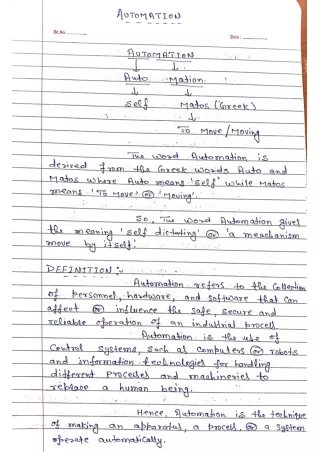 AUTOMATION
Sr.No. Date :
AUTOMATION
Auto Mation
Self Matos (Greek)
To Move / Moving
The word Automation is
derived from the Greek words Auto and
Matos where Auto means 'self' while Matos
means 'To Move' or 'Moving'.
So, The word Automation gives
the meaning 'self dictating' or 'a mechanism
move by itself'.
DEFINITION :-
Automation refers to the Collection
of personnel, hardware, and software that can
affect or influence the safe, secure and
reliable operation of an industrial process.
Automation is the use of
Control systems, such as computers or robots
and information technologies for handling
different processes and machineries to
replace a human being.
Hence, Automation is the technique
of making an apparatus, a process, or a system
operate automatically.